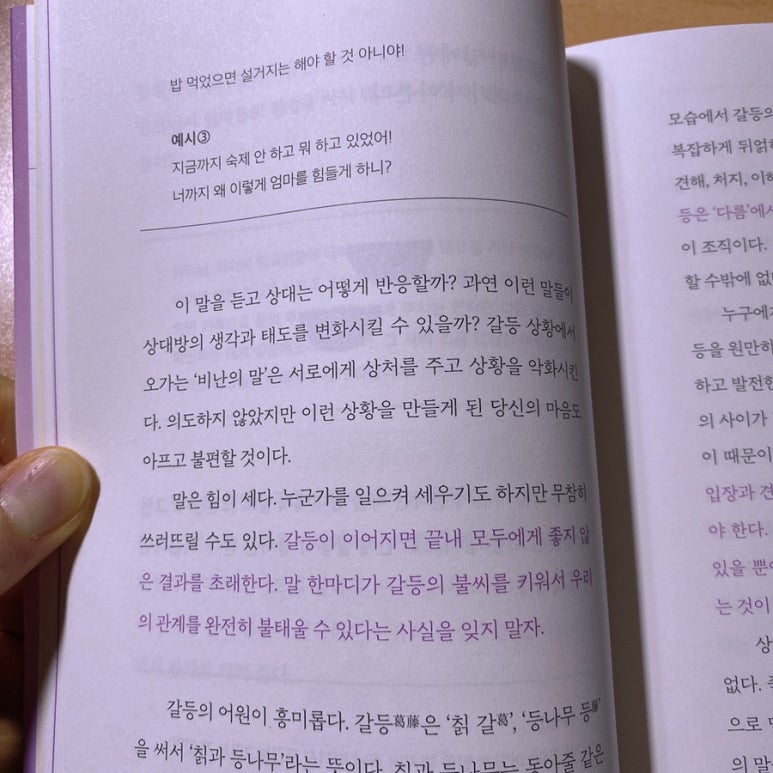 밥 먹었으면 설거지는 해야 할 것 아니야!
예시③
지금까지 숙제 안 하고 뭐 하고 있었어!
너까지 왜 이렇게 엄마를 힘들게 하니?
이 말을 듣고 상대는 어떻게 반응할까? 과연 이런 말들이
상대방의 생각과 태도를 변화시킬 수 있을까? 갈등 상황에서
오가는 ‘비난의 말’은 서로에게 상처를 주고 상황을 악화시킨
다. 의도하지 않았지만 이런 상황을 만들게 된 당신의 마음도
아프고 불편할 것이다.
말은 힘이 세다. 누군가를 일으켜 세우기도 하지만 무참히
쓰러뜨릴 수도 있다. 갈등이 이어지면 끝내 모두에게 좋지 않
은 결과를 초래한다. 말 한마디가 갈등의 불씨를 키워서 우리
의 관계를 완전히 불태울 수 있다는 사실을 잊지 말자.
갈등의 어원이 흥미롭다. 갈등葛藤은 ‘칡 갈葛’, ‘등나무 등藤’
을 써서 ‘칡과 등나무’라는 뜻이다. 칡과 등나무는 동아줄 같은
모습에서 갈등의
복잡하게 뒤얽
견해, 처지, 이해
등은 ‘다름’에서
이 조직이다.
할 수밖에 없
누구에게
등을 원만히
하고 발전한
의 사이가
이 때문이
입장과 견
야 한다.
있을 뿐
는 것이
상
없다.
으로
의 말